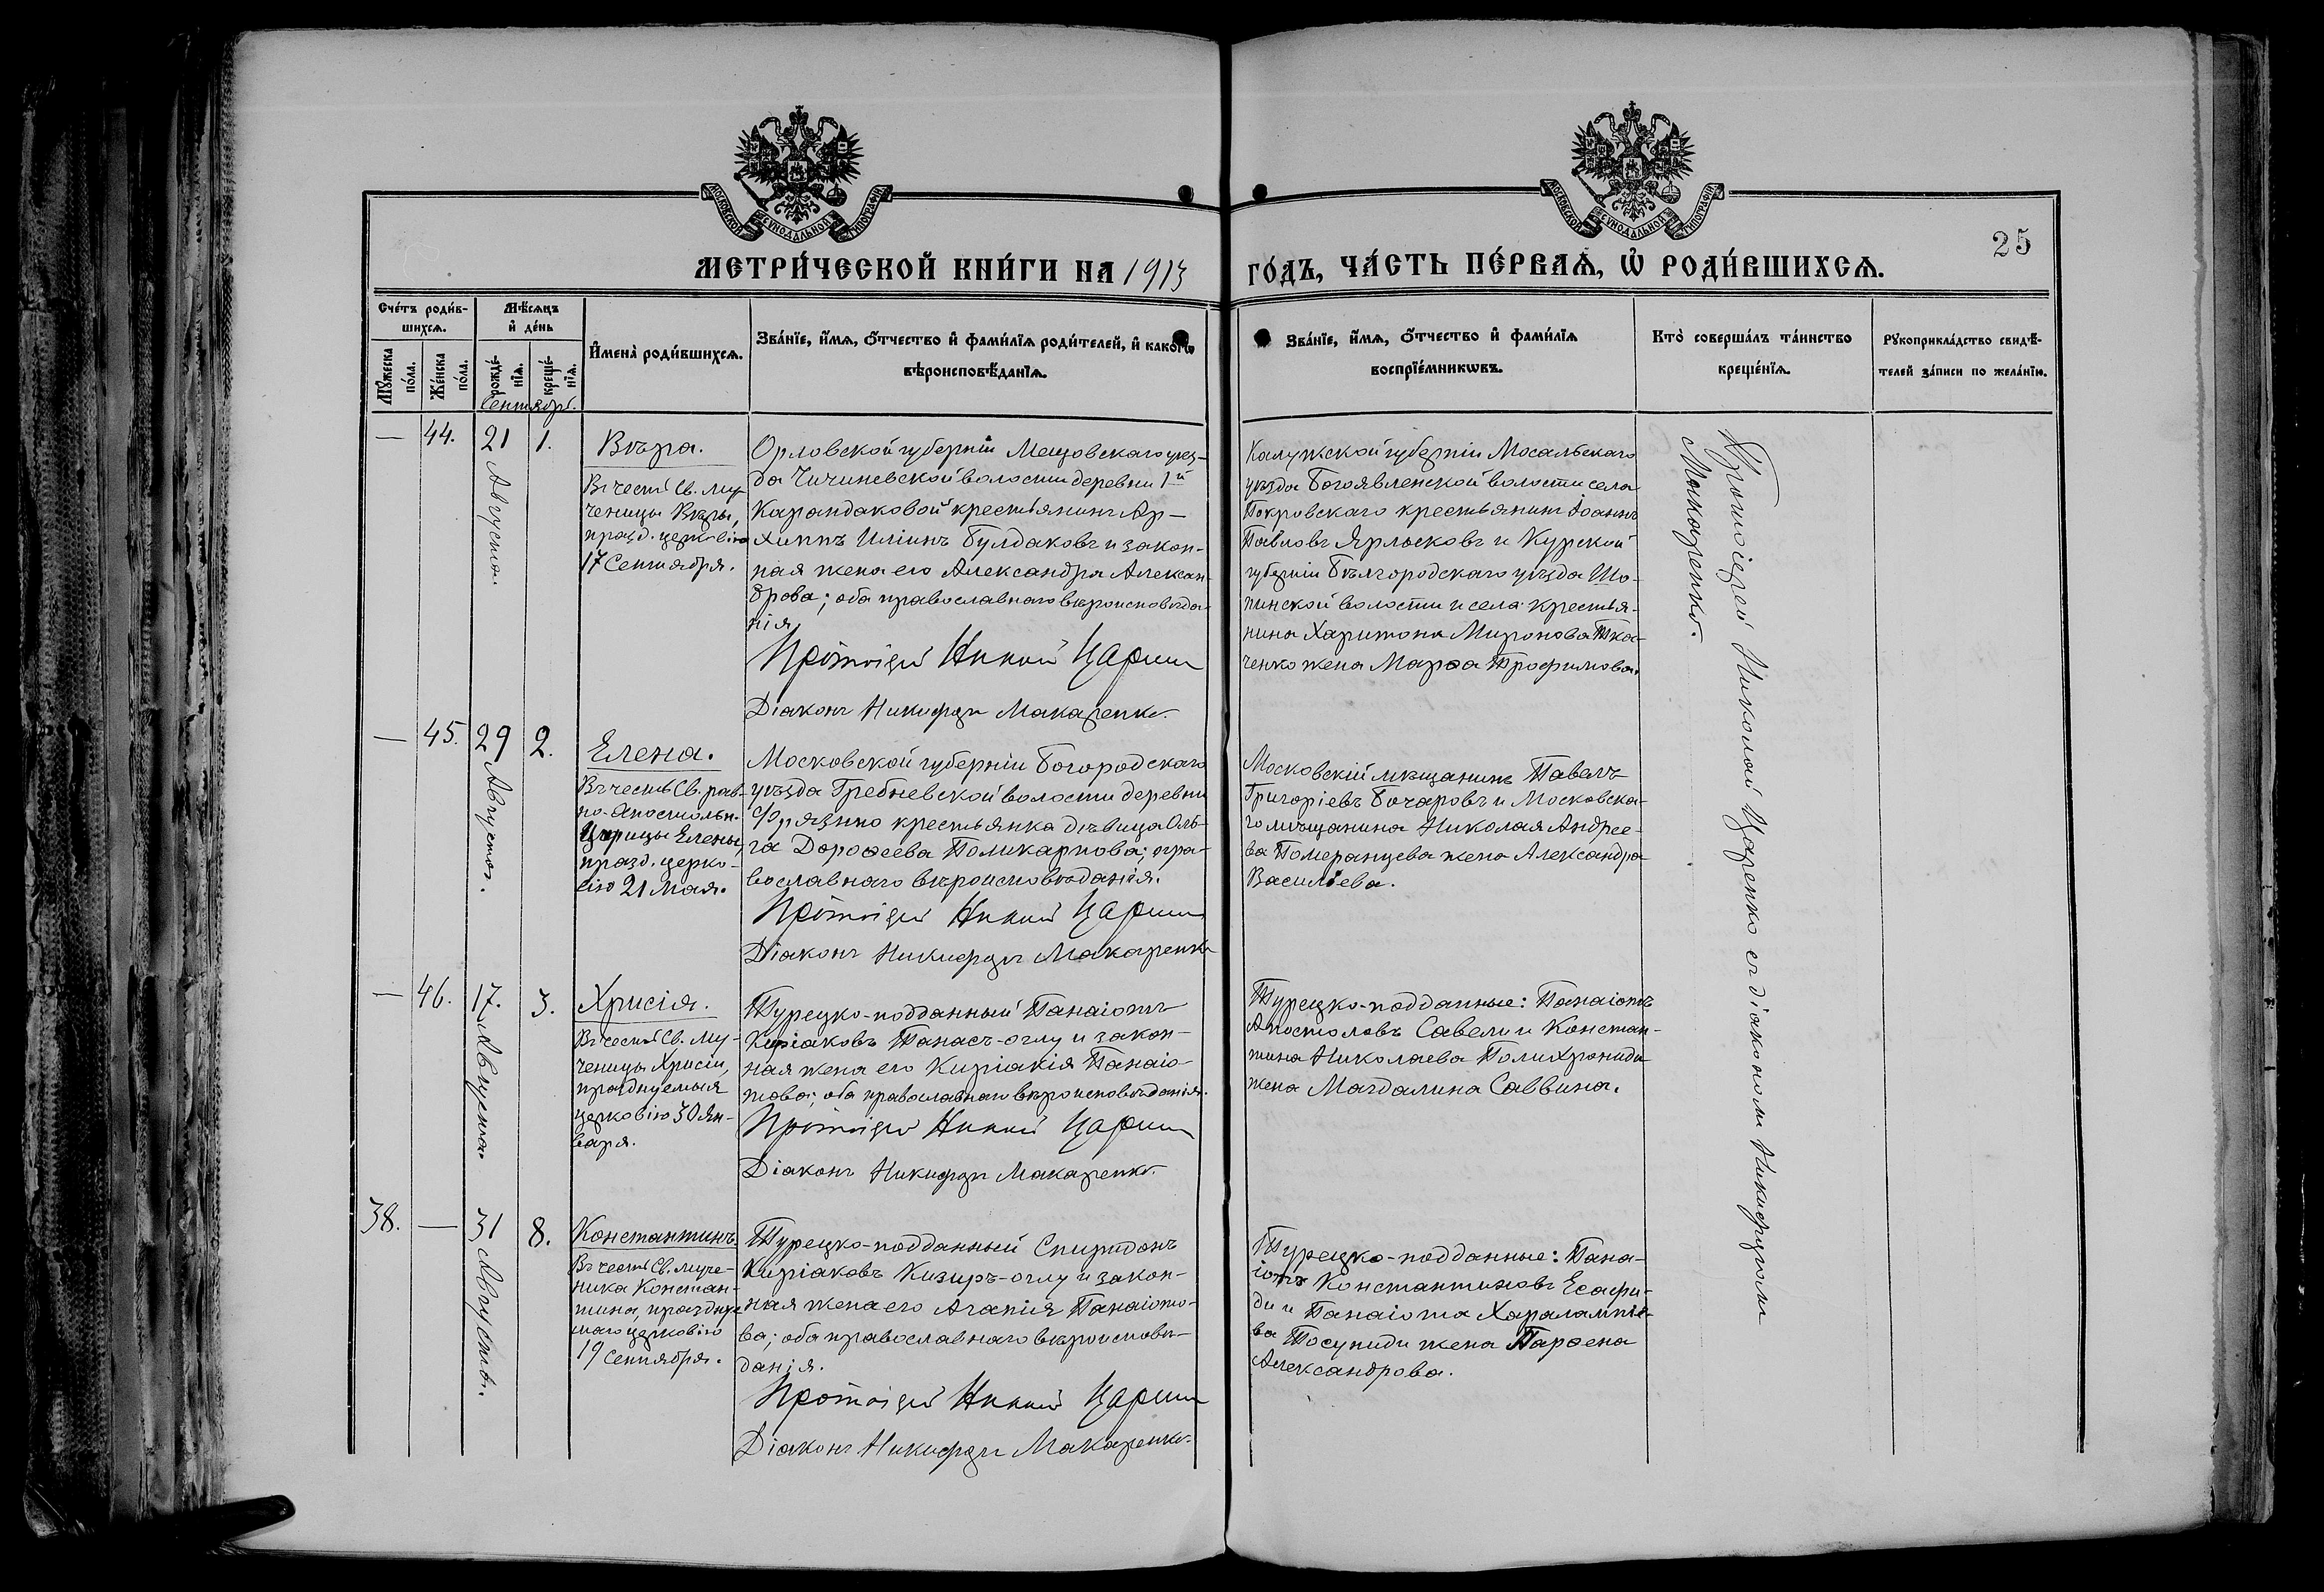 МОСКОВСКОЙ СУНОДАЛЬНОЙ ТИПОГРАФІИ
МОСКОВСКОЙ СУНОДАЛЬНОЙ ТИПОГРАФІИ
25
МЕТРИ́ЧЕСКОЙ КНИ́ГИ НА 1913
ГО́ДЪ, ЧА́СТЬ ПЕ́РВАѦ, Ѡ҆ РОДИ́ВШИХСѦ.
Сче́тъ роди́в-
шихсѧ.
Мѣ́сѧцъ
и҆ де́нь
Мꙋ́жеска
по́ла.
Же́нска
по́ла.
рожде́-
нїѧ.
креще́-
нїѧ.
И҆мена̀ роди́вшихсѧ.
Зва́нїе, и҆́мѧ, ѻ҆́тчество и҆ фами́лїѧ роди́телей, и҆ како́гѡ
вѣроисповѣ́данїѧ.
Зва́нїе, и҆́мѧ, ѻ҆́тчество и҆ фами́лїѧ
воспрїе́мникѡвъ.
Кто̀ соверша́лъ та́инство
креще́нїѧ.
Рꙋкоприкла́дство свидѣ́-
телей за́писи по жела́нїю.
Сентябрь.
— 44. 21 Августа. 1.
Вѣра.
Въ честь Св. му-
ченицы Вѣры,
празд. церковію
17 Сентября.
Орловской губерніи Мещовскаго уѣз-
да Чичиневской волости деревни 1й
Карандаковой крестьянинъ Ар-
хиппъ Иліинъ Булдаковъ и закон-
ная жена его Александра Алексан-
дрова; оба православнаго вѣроисповѣда-
нія
Протоіерей Николай Царенко
Діаконъ Никифоръ Макаренко.
Калужской губерніи Мосальскаго
уѣзда Богоявленской волости села
Покровскаго крестьянинъ Іоаннъ
Павловъ Ярлыковъ и Курской
губерніи Бѣлгородскаго уѣзда Шо-
пинской волости и села крестья-
нина Харитона Миронова Тка-
ченко жена Марѳа Трофимова.
Протоіерей Николай Царенко съ діакономъ Никифоромъ
Макаренко.
— 45. 29 Августа. 2.
Елена.
Въ честь Св. рав-
но-Апостольн.
Царицы Елены,
празд. церко-
вію 21 Мая.
Московской губерніи Богородскаго
уѣзда Гребневской волости деревни
Фрязино крестьянка дѣвица Оль-
га Дороѳеева Поликарпова; пра-
вославнаго вѣроисповѣданія.
Протоіерей Николай Царенко
Діаконъ Никифоръ Макаренко
Московскій мѣщанинъ Павелъ
Григоріевъ Бочаровъ и Московска-
го мѣщанина Николая Андрее-
ва Померанцева жена Александра
Васильева.
— 46. 17. Августа. 3.
Хрисія.
Въ честь Св. му-
ченицы Хрисіи,
празднуемыя
церковію 30 Ян-
варя.
Турецко-подданный Панаіотъ
Киріаковъ Танасъ-оглу и закон-
ная жена его Киріакія Панаіо-
това; оба православнаго вѣроисповѣданія.
Протоіерей Николай Царенко
Діаконъ Никифоръ Макаренко.
Турецко-подданные: Панаіотъ
Апостоловъ Савели и Констан-
тина Николаева Полихрониди
жена Магдалина Саввина.
38. — 31 Августа. 8.
Константинъ.
Въ честь Св. муче-
ника Констан-
тина, празднуе-
маго церковію
19 Сентября.
Турецко-подданный Спиридонъ
Киріаковъ Кизиръ-оглу и закон-
ная жена его Агапія Панаіото-
ва; оба православнаго вѣроисповѣ-
данія.
Протоіерей Николай Царенко
Діаконъ Никифоръ Макаренко.
Турецко-подданные: Пана-
іотъ Константиновъ Есафи-
ди и Панаіота Харалампіе-
ва Тосуниди жена Парѳена
Александрова.